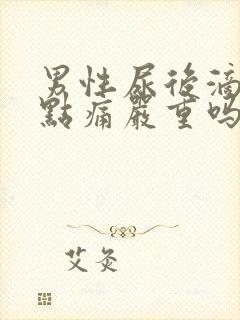 男性尿後滴
點痛嚴重吗
艾灸